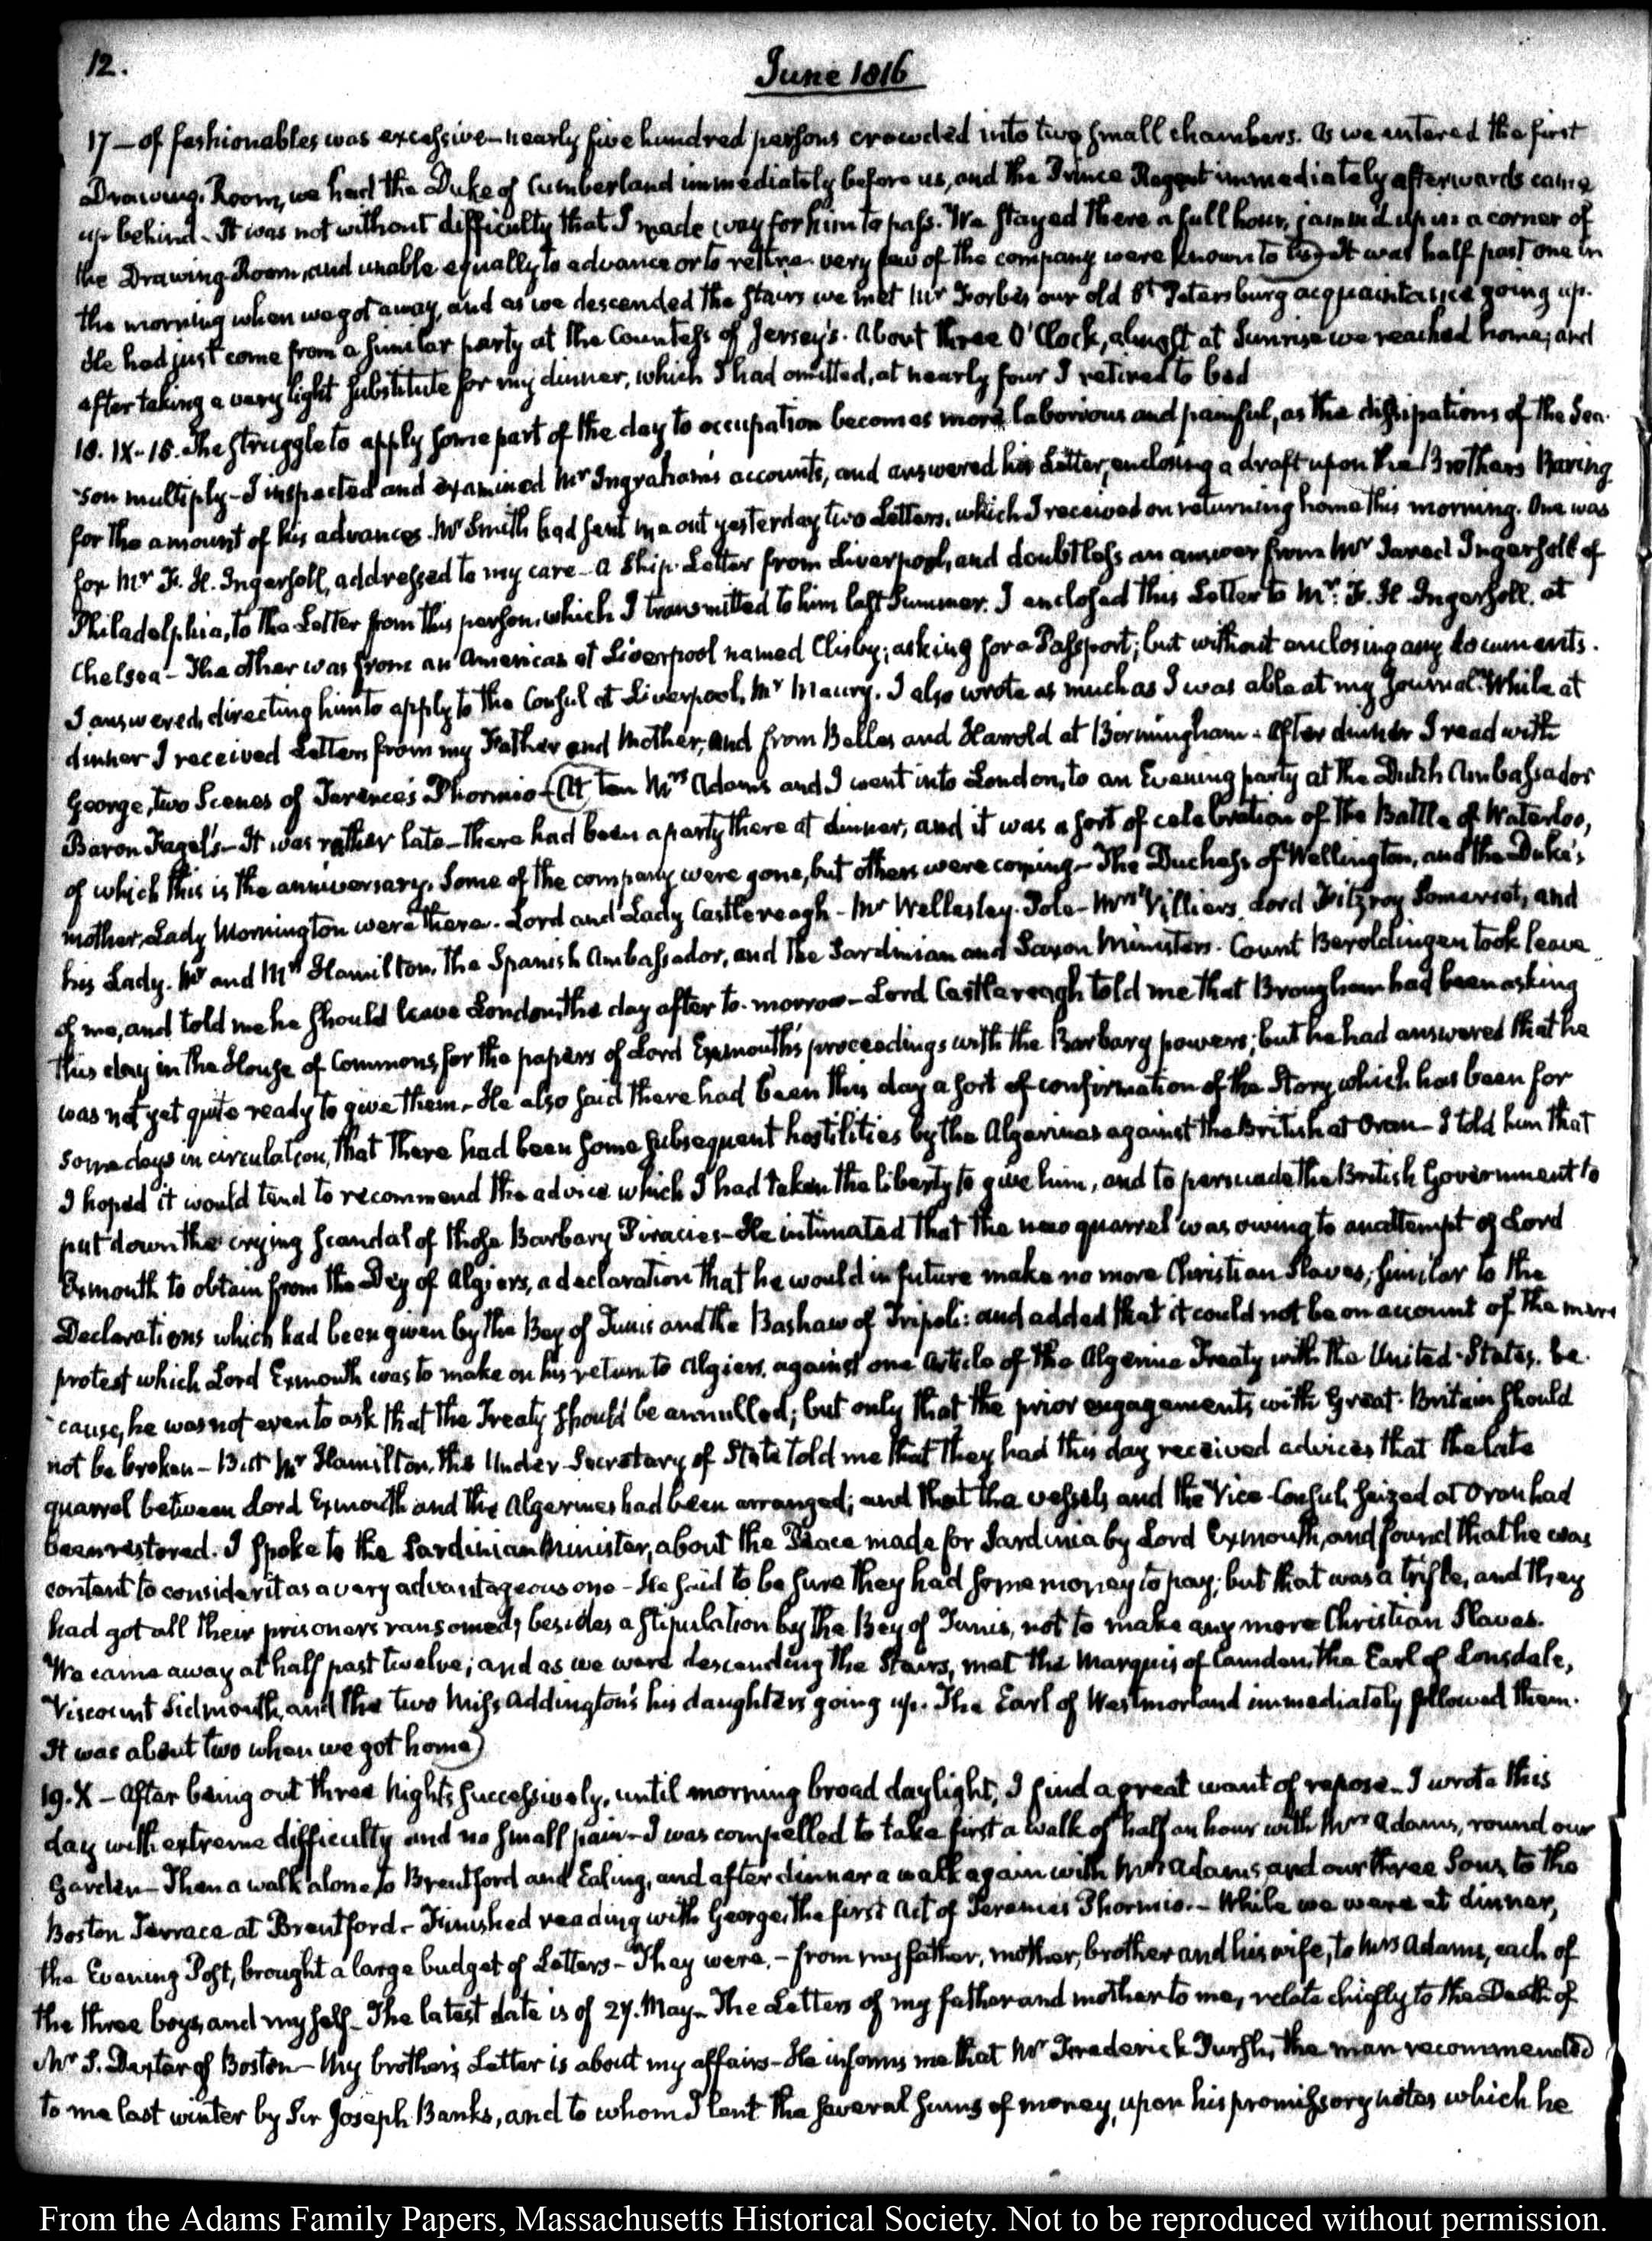 12.
June 1816
17 — of fashionables was excessive — nearly five hundred persons crowded into two small chambers. As we entered the first
Drawing-Room, we had the Duke of Cumberland immediately before us, and the Prince Regent immediately afterwards came
up behind. It was not without difficulty that I made way for him to pass. We stayed there a full hour, jammed up in a corner of
the Drawing-Room, and unable equally to advance or to retire. very few of the company were known to us. It was half past one in
the morning when we got away, and as we descended the stairs we met Mr Forbes our old St Petersburg acquaintance going up.
He had just come from a similar party at the Countess of Jersey's. About three O'Clock, almost at Sunrise we reached home; and
after taking a very light substitute for my dinner, which I had omitted, at nearly four I retired to bed
18. IX-15. The struggle to apply some part of the day to occupation becomes more laborious and painful, as the dissipations of the Sea-
son multiply — I inspected and examined Mr Ingraham's accounts, and answered his Letter, enclosing a draft upon the Brothers Baring
for the amount of his advances. Mr Smith had sent me out yesterday two Letters, which I received on returning home this morning. One was
for Mr F. H. Ingersoll, addressed to my care — a Ship-Letter from Liverpool, and doubtless an answer from Mr Jared Ingersoll of
Philadelphia, to the Letter from this person, which I transmitted to him last Summer. I enclosed this Letter to Mr. F. H. Ingersoll, at
Chelsea — The other was from an American at Liverpool named Clisby; asking for a Passport; but without enclosing any documents.
I answered, directing him to apply to the Consul at Liverpool, Mr Maury. I also wrote as much as I was able at my Journal. While at
dinner I received Letters from my Father and Mother, and from Belles and Harrold at Birmingham. After dinner I read with
George, two Scenes of Terence's Phormio (At ten Mrs Adams and I went into London, to an Evening party at the Dutch Ambassador
Baron Fagel's — It was rather late — there had been a party there at dinner, and it was a sort of celebration of the Battle of Waterloo,
of which this is the anniversary. Some of the company were gone, but others were coming — The Duchess of Wellington, and the Duke's
mother, Lady Mornington were there. Lord and Lady Castlereagh — Mr Wellesley-Pole — Mrs Villiers, Lord Fitzroy Somerset, and
his Lady. Mr and Mrs Hamilton, The Spanish Ambassador, and the Sardinian and Saxon Ministers. Count Beroldingen took leave
of me, and told me he should leave London, the day after to-morrow — Lord Castlereagh told me that Brougham had been asking
this day in the House of Commons, for the papers of Lord Exmouth's proceedings with the Barbary powers; but he had answered that he
was not yet quite ready to give them. He also said there had been this day a sort of confirmation of the Story, which has been for
some days in circulation, that there had been some subsequent hostilities by the Algerines against the British at Oran — I told him that
I hoped it would tend to recommend the advice which I had taken the liberty to give him, and to persuade the British Government to
put down the crying scandal of those Barbary Piracies — He intimated that the new quarrel was owing to an attempt of Lord
Exmouth to obtain from the Dey of Algiers, a declaration that he would in future make no more Christian Slaves; similar to the
Declarations which had been given by the Bey of Tunis and the Bashaw of Tripoli: and added that it could not be on account of the mere
protest which Lord Exmouth was to make on his return to Algiers, against one Article of the Algerine Treaty with the United-States, be-
cause, he was not even to ask that the Treaty should be annulled; but only that the prior engagements with Great-Britain should
not be broken — But Mr Hamilton, the Under-Secretary of State told me that they had this day received advices that the late
quarrel between Lord Exmouth and the Algerines had been arranged; and that the vessels and the Vice-Consul, seized at Oran had
been restored. I spoke to the Sardinian Minister, about the Peace made for Sardinia by Lord Exmouth, and found that he was
content to consider it as a very advantageous one — He said to be sure they had some money to pay; but that was a trifle, and they
had got all their prisoners ransomed, besides a stipulation by the Bey of Tunis, not to make any more Christian Slaves.
We came away at half past twelve; and as we were descending the Stairs, met the Marquis of Camden, the Earl of Lonsdale,
Viscount Sidmouth, and the two Miss Addington's his daughters going up. The Earl of Westmorland immediately followed them.
It was about two when we got home)
19. X — After being out three nights successively, until morning broad daylight, I find a great want of repose. I wrote this
day with extreme difficulty and no small pain — I was compelled to take first a walk of half an hour with Mrs Adams, round our
garden — Then a walk alone to Brentford and Ealing, and after dinner a walk again with Mrs Adams and our three Sons, to the
Boston Terrace at Brentford — Finished reading with George, the first Act of Terence's Phormio. — While we were at dinner,
the Evening Post, brought a large budget of Letters — They were, — from my father, mother, brother and his wife, to Mrs Adams, each of
the three boys, and myself. The latest date is of 27. May — The Letters of my father and mother to me, relate chiefly to the Death of
Mr S. Dexter of Boston — My brother's Letter is about my affairs — He informs me that Mr Frederick Pursh, the man recommended
to me last winter by Sir Joseph Banks, and to whom I lent the several sums of money, upon his promissory notes which he
From the Adams Family Papers, Massachusetts Historical Society. Not to be reproduced without permission.